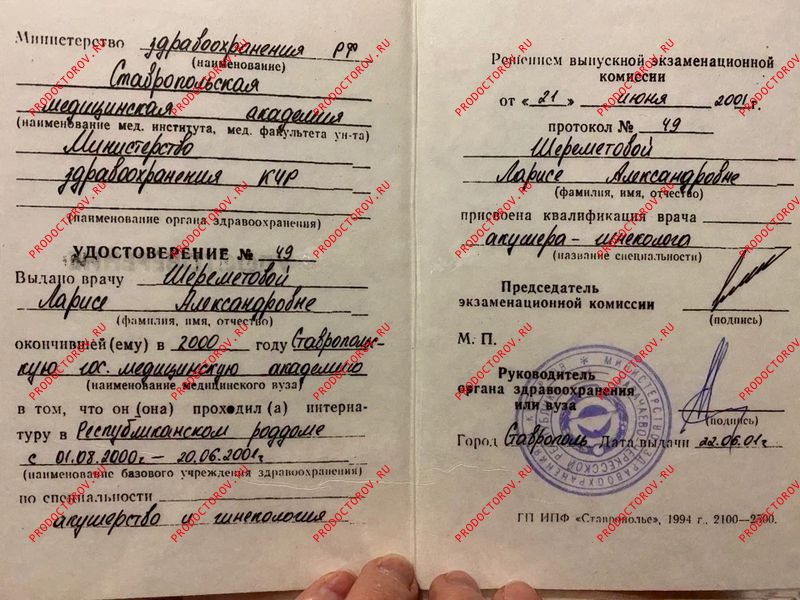 Министерство здравоохранения РФ
(наименование)
Ставропольская
медицинская академия
(наименование мед. института, мед. факультета ун-та)
Министерство
здравоохранения КЧР
(наименование органа здравоохранения)
УДОСТОВЕРЕНИЕ № 49
Выдано врачу Шереметовой
Ларисе Александровне
(фамилия, имя, отчество)
окончившей (ему) в 2000 году Ставрополь-
скую гос. медицинскую академию
(наименование медицинского вуза)
в том, что он (она) проходил (а) интерна-
туру в Республиканском роддоме
с 01.08.2000г – 20.06.2001г
(наименование базового учреждения здравоохранения)
по специальности
акушерство и гинекология
Решением выпускной экзаменационной
комиссии
от «21» июня 2001г.
протокол № 49
Шереметовой
Ларисе Александровне
(фамилия, имя, отчество)
присвоена квалификация врача
акушера-гинеколога
(название специальности)
Председатель
экзаменационной комиссии
(подпись)
М. П.
Руководитель
органа здравоохранения
или вуза
(подпись)
Город Ставрополь Дата выдачи 22.06.01г
ГП ИПФ «Ставрополье», 1994 г., 2100—2500.
PRODOCTOROV.RU